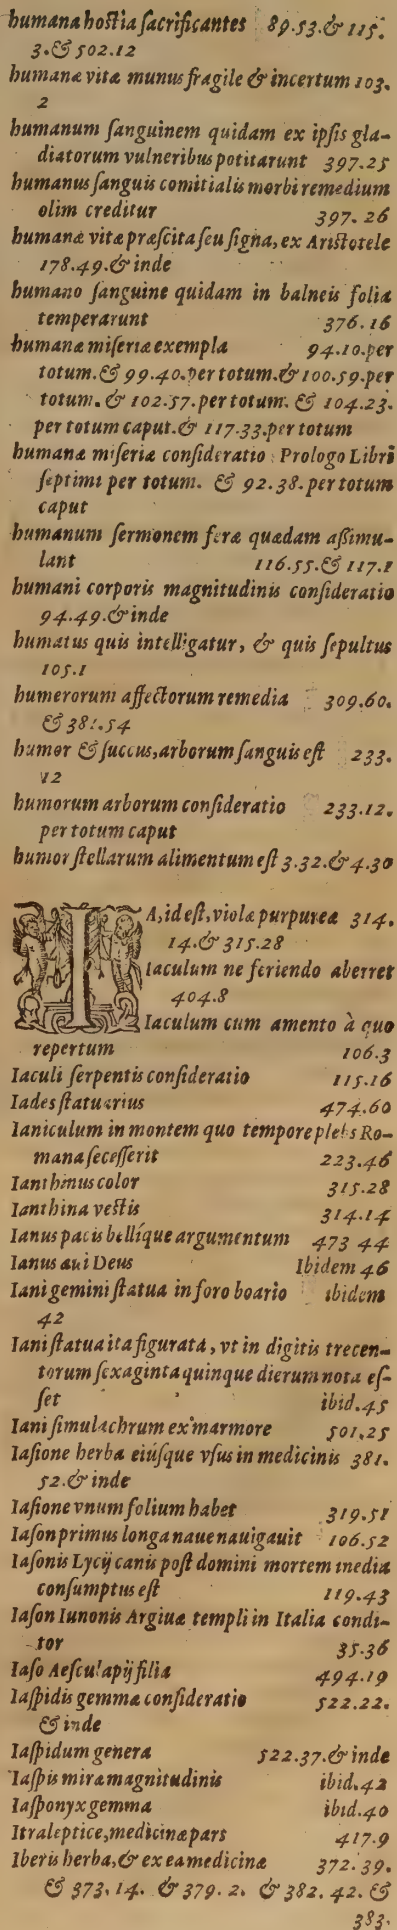 humana hostia sacrificantes 89.53.& 115.
3.& 502.12
humanæ vitæ munus fragile & incertum 103.
2
humanum sanguinem quidam ex ipsis gla-
diatorum vulneribus potitarunt 397.25
humanus sanguis comitialis morbi remedium
olim creditur 397.26
humanæ vitæ præscita seu signa, ex Aristotele
178.49.& inde
humano sanguine quidam in balneis folia
temperarunt 376.16
humanæ miseriæ exempla 94.10.per
totum.& 99.40.per totum.& 100.59.per
totum. & 102.57.per totum. & 104.23.
per totum caput.& 117.33.per totum
humanæ miseriæ consideratio Prologo Libri
septimi per totum. & 92.38.per totum
caput
humanum sermonem feræ quædam assimu-
lant 116.55.& 117.1
humani corporis magnitudinis consideratio
94.49.& inde
humatus quis intelligatur, & quis sepultus
105.1
humerorum affectorum remedia 309.60.
& 381.54
humor & succus, arborum sanguis est 233.
12
humorum arborum consideratio 233.12.
per totum caput
humor stellarum alimentum est 3.32.& 4.30
IA, id est, violæ purpureæ 314.
14.& 315.28
Iaculum ne feriendo aberret
404.8
Iaculum cum amento à quo
repertum 106.3
Iaculi serpentis consideratio 115.16
Iades statuarius 474.60
Ianiculum in montem quo tempore plebs Ro-
mana secesserit 223.46
Ianthinus color 315.28
Ianthina vestis 314.14
Ianus pacis bellíque argumentum 473 44
Ianus aui Deus Ibidem 46
Iani gemini statua in foro boario ibidem
42
Iani statua ita figurata, vt in digitis trecen-
torum sexaginta quinque dierum nota es-
set ibid.45
Iani simulachrum ex marmore 501.25
Iasione herba eiúsque vsus in medicinis 381.
52.& inde
Iasione vnum folium habet 319.51
Iason primus longa naue nauigauit 106.52
Iasonis Lycij canis post domini mortem inedia
consumptus est 119.43
Iason Iunonis Argiuæ templi in Italia condi-
tor 35.36
Iaso Aesculapij filia 494.19
Iaspidis gemmæ consideratio 522.22.
& inde
Iaspidum genera 522.37.& inde
Iaspis miræ magnitudinis ibid.42
Iasponyx gemma ibid.40
Itraleptice, medicinæ pars 417.9
Iberis herba, & ex ea medicinæ 372.39.
& 373.14. & 379.2. & 382.42. &
383.